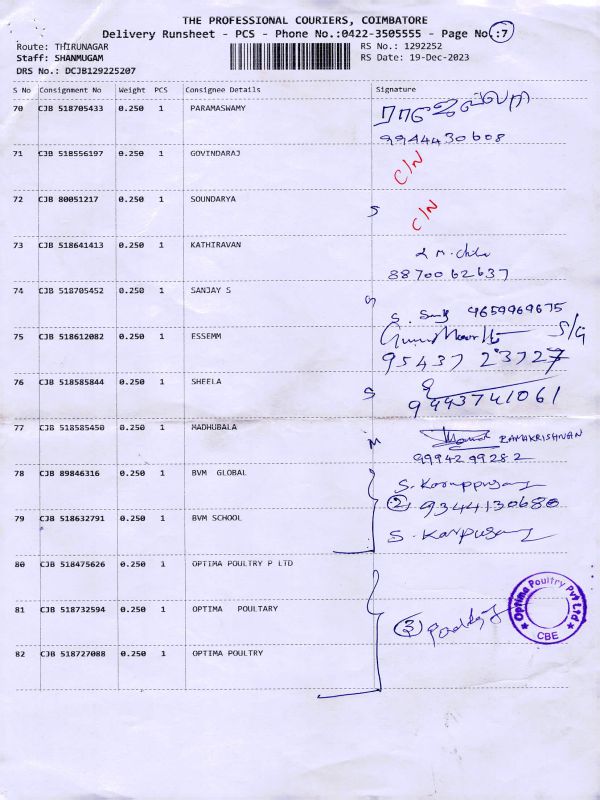 THE PROFESSIONAL COURIERS, COIMBATORE
Delivery Runsheet - PCS - Phone No.:0422-3505555 - Page No.:7
Route: THIRUNAGAR RS No.: 1292252
Staff: SHANMUGAM RS Date: 19-Dec-2023
DRS No.: DCJB129225207
S No Consignment No Weight PCS Consignee Details Signature
70 CJB 518705433 0.250 1 PARAMASWAMY
9944430608
71 CJB 518556197 0.250 1 GOVINDARAJ C/N
72 CJB 80051217 0.250 1 SOUNDARYA S C/N
73 CJB 518641413 0.250 1 KATHIRAVAN
8870062637
74 CJB 518705452 0.250 1 SANJAY S
S. 9659969675
75 CJB 518612082 0.250 1 ESSEMM S/G
95437 23727
76 CJB 518585844 0.250 1 SHEELA S
9943741061
77 CJB 518585450 0.250 1 MADHUBALA M RAMAKRISHNAN
9994299282
78 CJB 89846316 0.250 1 BVM GLOBAL
2 9344130680
79 CJB 518632791 0.250 1 BVM SCHOOL
80 CJB 518475626 0.250 1 OPTIMA POULTRY P LTD
81 CJB 518732594 0.250 1 OPTIMA POULTARY 3
Optima Poultry Pvt Ltd
CBE
82 CJB 518727088 0.250 1 OPTIMA POULTRY